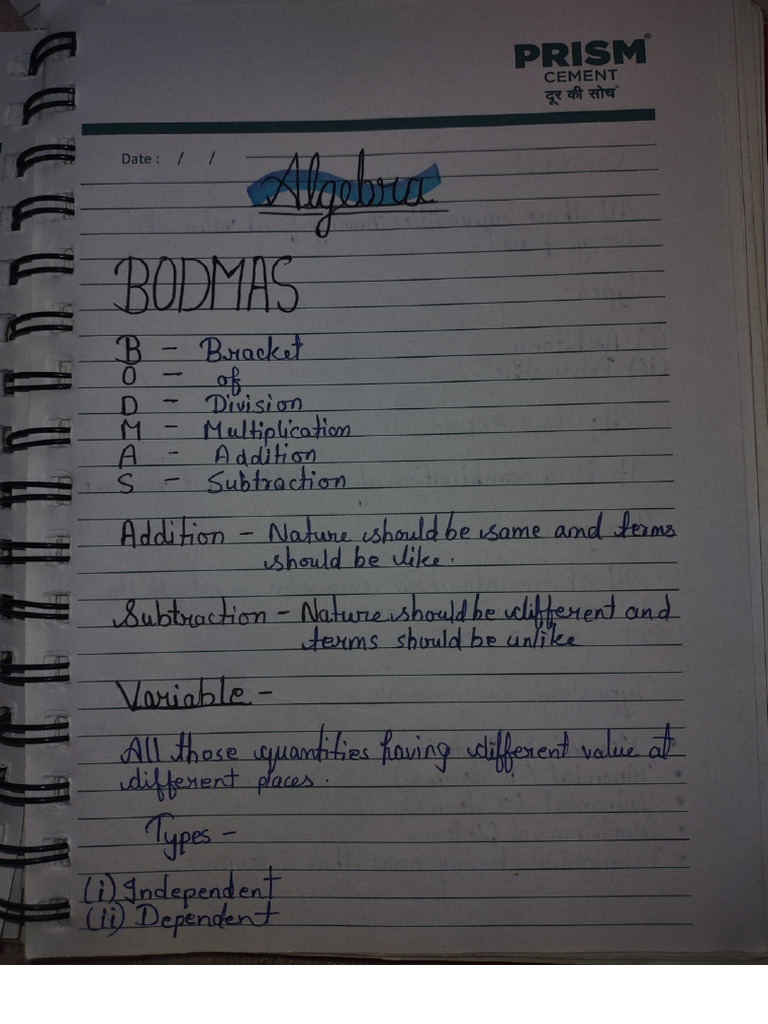 PRISM®
CEMENT
दूर की सोच
Date : / /
Algebra
BODMAS
B - Bracket
O - of
D - Division
M - Multiplication
A - Addition
S - Subtraction
Addition - Nature should be same and terms
should be like.
Subtraction - Nature should be different and
terms should be unlike
Variable -
All those quantities having different value at
different places.
Types -
(i) Independent
(ii) Dependent